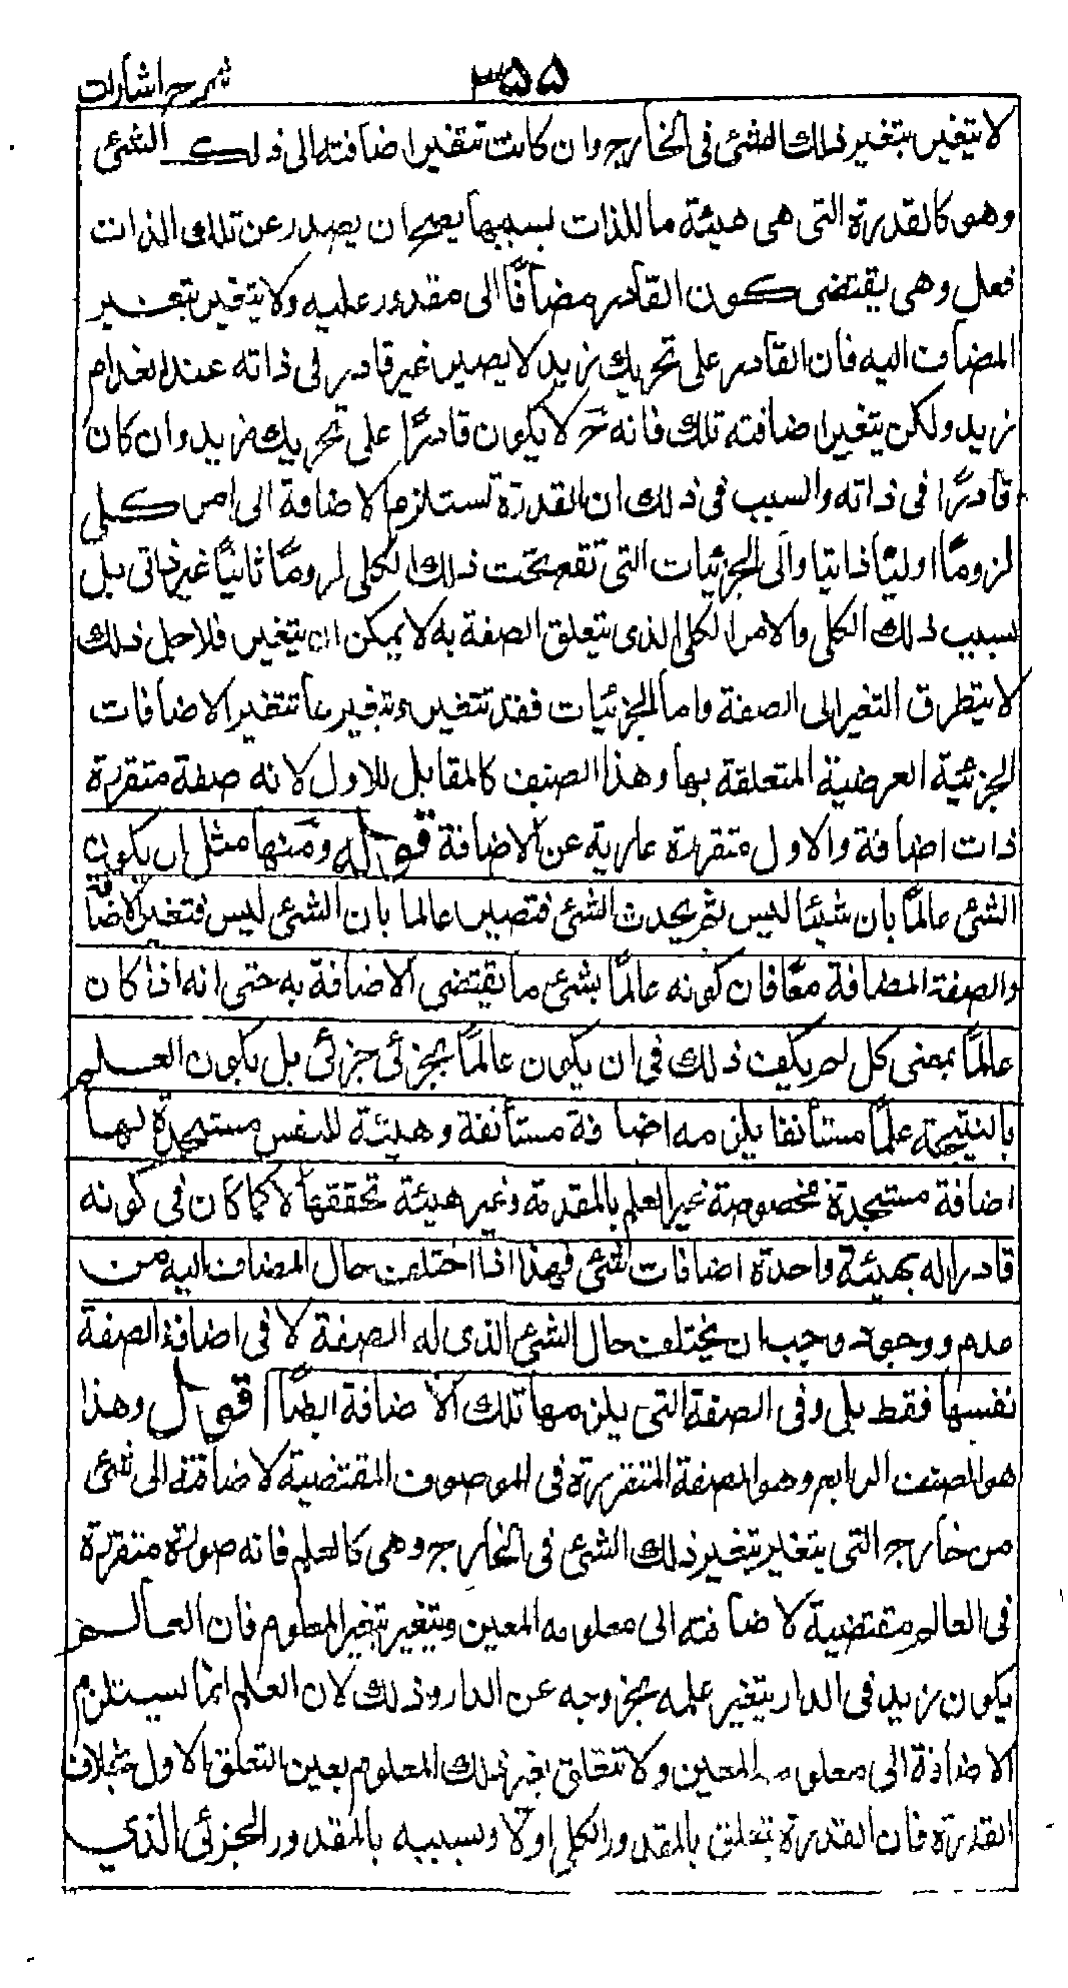 شرح اشارات
۳۵۵
لا يتغير بتغير ذلك الشئ فى الخارج وان كانت تتغير اضافته الى ذلك الشئ
وهو كالقدرة التى هى هيئة ما للذات بسببها يصح ان يصدر عن تلك الذات
فعل وهى يقتضى كون القادر مضافًا الى مقدور عليه ولا يتغير بتغير
المضاف اليه فان القادر على تحريك زيد لا يصير غير قادر فى ذاته عند انعدام
زيد ولكن يتغير اضافته تلك فانه ح لا يكون قادرًا على تحريك زيد وان كان
قادرًا فى ذاته والسبب فى ذلك ان القدرة تستلزم الاضافة الى امر كلى
لزومًا اوليًا ذاتيا والى الجزئيات التى تقع تحت ذلك الكلى لزومًا ثانيًا غير ذاتى بل
بسبب ذلك الكلى والامر الكلى الذى يتعلق الصفة به لا يمكن ان يتغير فلاجل ذلك
لا يتطرق التغير الى الصفة واما الجزئيات فقد تتغير وبتغيرها تتغير الاضافات
الجزئية العرضية المتعلقة بها وهذا الصنف كالمقابل للاول لانه صفة متقررة
ذات اضافة والاول متقررة عارية عن الاضافة قوله ومنها مثل ان يكون
الشئ عالمًا بان شيئا ليس ثم يحدث الشئ فتصير عالما بان الشئ ليس فتغير الاضافة
والصفة المضافة معًا فان كونه عالمًا بشئ ما يقتضى الاضافة به حتى انه اذا كان
عالمًا بمعنى كل لم يكف ذلك فى ان يكون عالمًا بجزئى جزئى بل يكون العلم
بالنتيجة علمًا مستأنفا يلزمه اضافة مستأنفة وهيئة للنفس مستجدة لها
اضافة مستجدة مخصوصة غير العلم بالمقدمة وغير هيئة تحققها لا كما كان فى كونه
قادرا له بهيئة واحدة اضافات شئ فهذا اذا اختلف حال المضاف اليه من
عدم ووجود وجب ان يختلف حال الشئ الذى له الصفة لا فى اضافة الصفة
نفسها فقط بل وفى الصفة التى يلزمها تلك الاضافة ايضًا اقول وهذا
هو الصنف الرابع وهو الصفة المتقررة فى الموصوف المقتضية لاضافته الى شئ
من خارج التى يتغير بتغير ذلك الشئ فى الخارج وهى كالعلم فانه صورة متقررة
فى العالم مقتضية لاضافته الى معلومه المعين ويتغير بتغير المعلوم فان العالم
بكون زيد فى الدار يتغير علمه بخروجه عن الدار وذلك لان العلم انما يستلزم
الاضافة الى معلومه المعين ولا تتعلق بغير ذلك المعلوم بعين التعلق الاول بخلاف
القدرة فان القدرة يتعلق بالمقدور الكلى اولا وبسببه بالمقدور الجزئى الذى